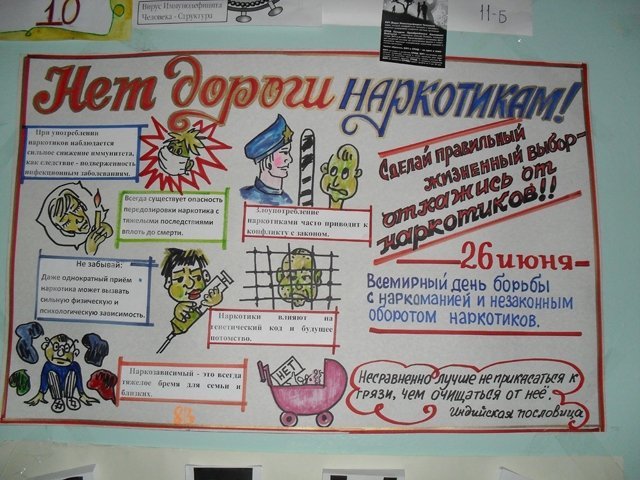 10
Вирус Иммунодефицита
Человека - Структура
11-Б
Нет дороги наркотикам!
При употреблении
наркотиков наблюдается
сильное снижение иммунитета,
как следствие - подверженность
инфекционным заболеваниям.
Всегда существует опасность
передозировки наркотика с
тяжелыми последствиями
вплоть до смерти.
Злоупотребление
наркотиками часто приводит к
конфликту с законом.
Не забывай:
Даже однократный приём
наркотика может вызвать
сильную физическую и
психологическую зависимость.
Наркотики влияют на
генетический код и будущее
потомство.
Наркозависимый - это всегда
тяжелое бремя для семьи и
близких.
НЕТ
Сделай правильный
жизненный выбор-
откажись от
наркотиков!!
26 июня-
Всемирный день борьбы
с наркоманией и незаконным
оборотом наркотиков.
Несравненно лучше не прикасаться к
грязи, чем очищаться от неё.
Индийская пословица